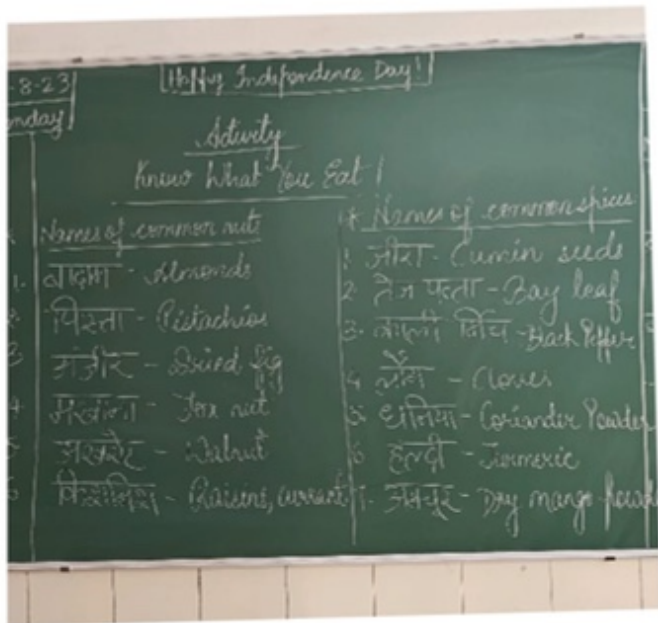 -8-23
Happy Independence Day!
nday
Activity
Know What You Eat!
Names of common nuts
1. बादाम - Almonds
2. पिस्ता - Pistachios
3 अंजीर - Dried fig
4. मखाना - Fox nut
5 अखरोट - Walnut
6 किशमिश - Raisins, currant
* Names of common spices
1. जीरा - Cumin seeds
2. तेज पत्ता - Bay leaf
3. काली मिर्च - Black Pepper
4 लौंग - Cloves
5. धनिया - Coriander Powder
6 हल्दी - Turmeric
अमचूर - Dry mango powd